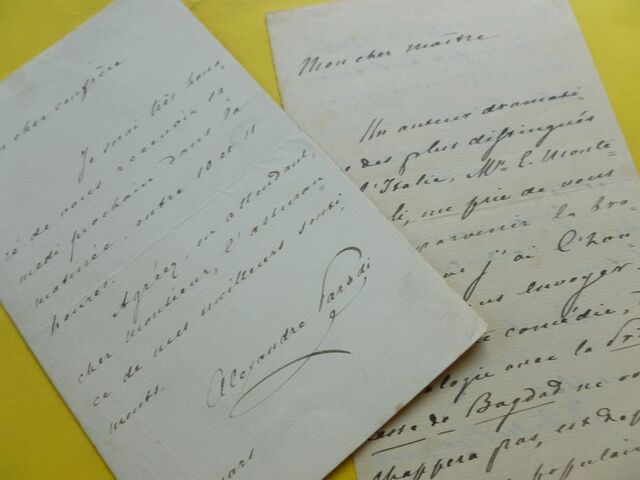 n cher confrère
Je serai très hono,
ré de vous recevoir sa
medi prochain dans la
matinée, entre 10 et 11
heures.
Agréez, en attendant,
cher monsieur, l'assuran
ce de mes meilleurs senti,
ments.
Alexandre Parodi
mars
Mon cher maître
Un auteur dramati
des plus distingués
l'Italie, Mr. L. Monte
li, me prie de vous
arvenir la bro
ue j'ai l'hon
us envoyer
comédie,
logie avec la Pr
esse de Bagdad ne vo
chappera pas, est de
populair